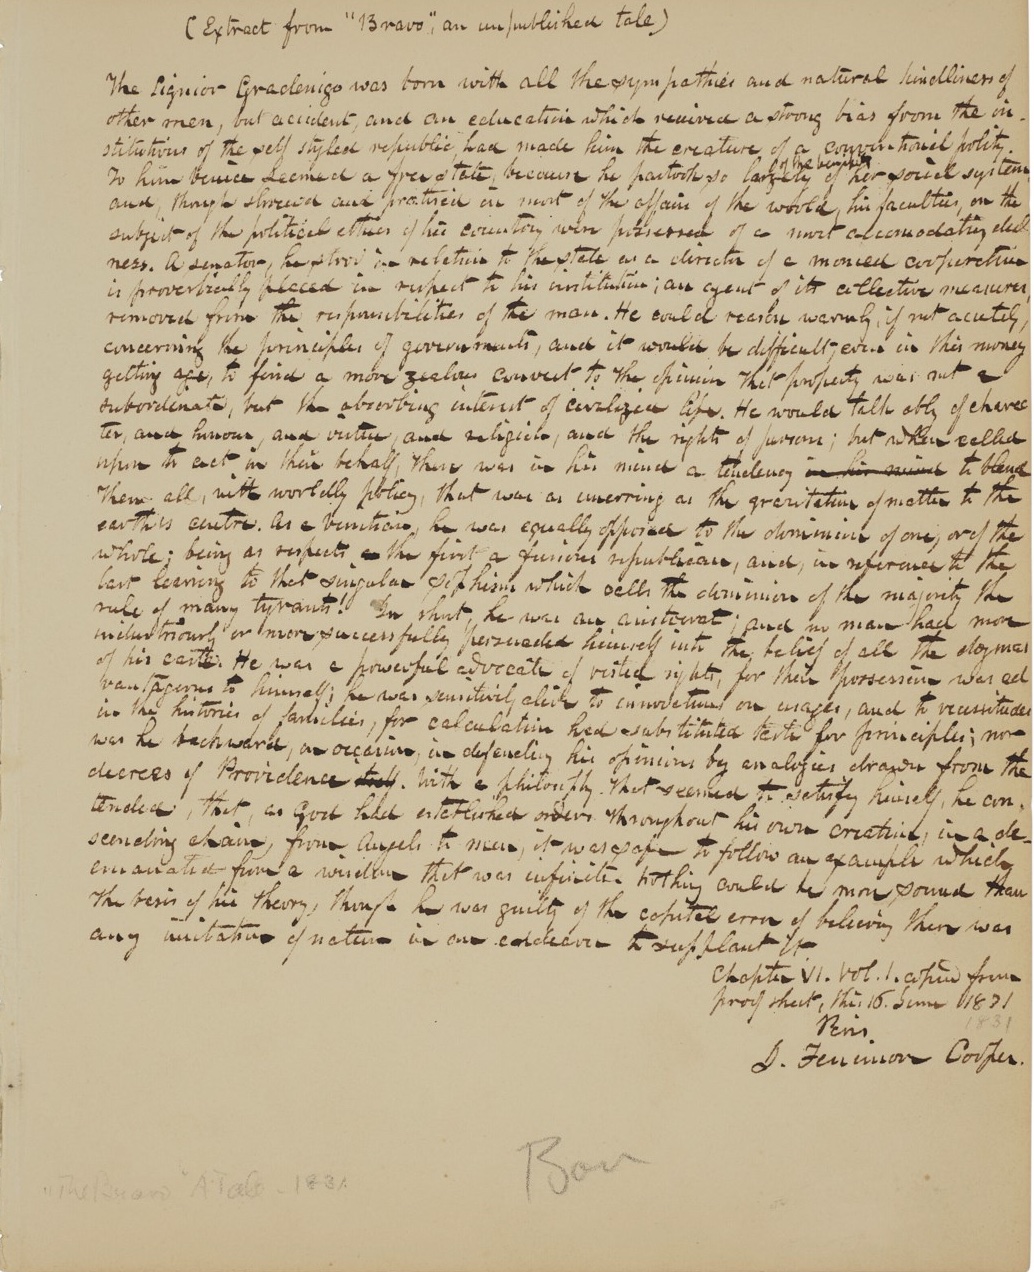 (Extract from "Bravo", an unpublished tale)
The Signior Gradenigo was born with all the sympathies and natural kindliness of
other men, but accident, and an education which received a strong bias from the in-
stitutions of the self styled republic had made him the creature of a conventional polity.
To him Venice seemed a free state, because he partook so largely of the benefits of her social system,
and, though shrewd and practised in most of the affairs of the world, his faculties, on the
subject of the political ethics of his country were possessed of a most accomodating dul
ness. A senator, he stood in relation to the state as a director of a monied corporation
is proverbially placed in respect to his institution; an agent of its collective measures,
removed from the responsibilities of the man. He could reason warmly, if not acutely,
concerning the principles of governments, and it would be difficult, even in this money
getting age, to find a more zealous convert to the opinion that property was not a
subordinate, but the absorbing interest of civalized life. He would talk ably of charac
ter, and honour, and virtue, and religion, and the rights of persons; but when called
upon to act in their behalf, there was in his mind a tendency in his mind to blend
them all, with worldly policy, that was as unerring as the gravitation of matter to the
earth's centre. As a Venitian, he was equally opposed to the dominion of one, or of the
whole; being as respects the first a furious republican, and, in reference to the
last leaning to that singular sophism which calls the dominion of the majority the
rule of many tyrants! In short, he was an aristocrat; and no man had more
industriously or more successfully persuaded himself into the belief of all the dogmas
of his caste. He was a powerful advocate of vested rights, for their possession was ad
vantageous to himself; he was sensitively alive to innovations on usages, and to vicissitudes
in the histories of families, for calculation had substituted taste for principles; nor
was he backward, on occasion, in defending his opinions by analogies drawn from the
decrees of Providence. With a philosophy that seemed to satisfy himself, he con-
tended, that, as God had established orders throughout his own creation, in a de-
scending chain, from Angels to men, it was safe to follow an example which
emanated from a wisdom that was infinite. Nothing could be more sound than
the basis of his theory, though he was guilty of the capital error of believing there was
any imitation of nature in an endeavor to supplant it
Chapter VI. Vol. 1. copied from
proof sheet, this 16. June 1831
1831
Paris
J. Fenimore Cooper.
"The Bravo" A Tale - 1831